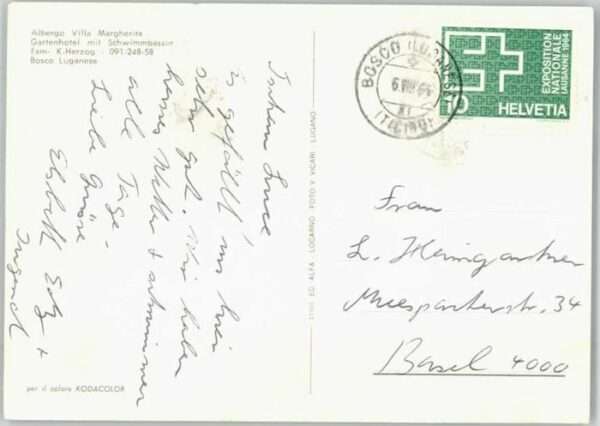 Albergo Villa Margherita
Gartenhotel mit Schwimmbassin
Fam. K. Herzog - 091-248-58
Bosco Luganese
es gefällt uns hier
sehr gut. Wir haben
Wetter + schwimmen
alle Tage.
Liebe Grüsse
Elsbeth +
per il colore KODACOLOR
ED. ALFA - LOCARNO - FOTO V. VICARI, LUGANO
BOSCO (LUGANESE)
(TICINO)
EXPOSITION
NATIONALE
LAUSANNE 1964
10 HELVETIA
Frau
L. Heimgartner
34
Basel 4000